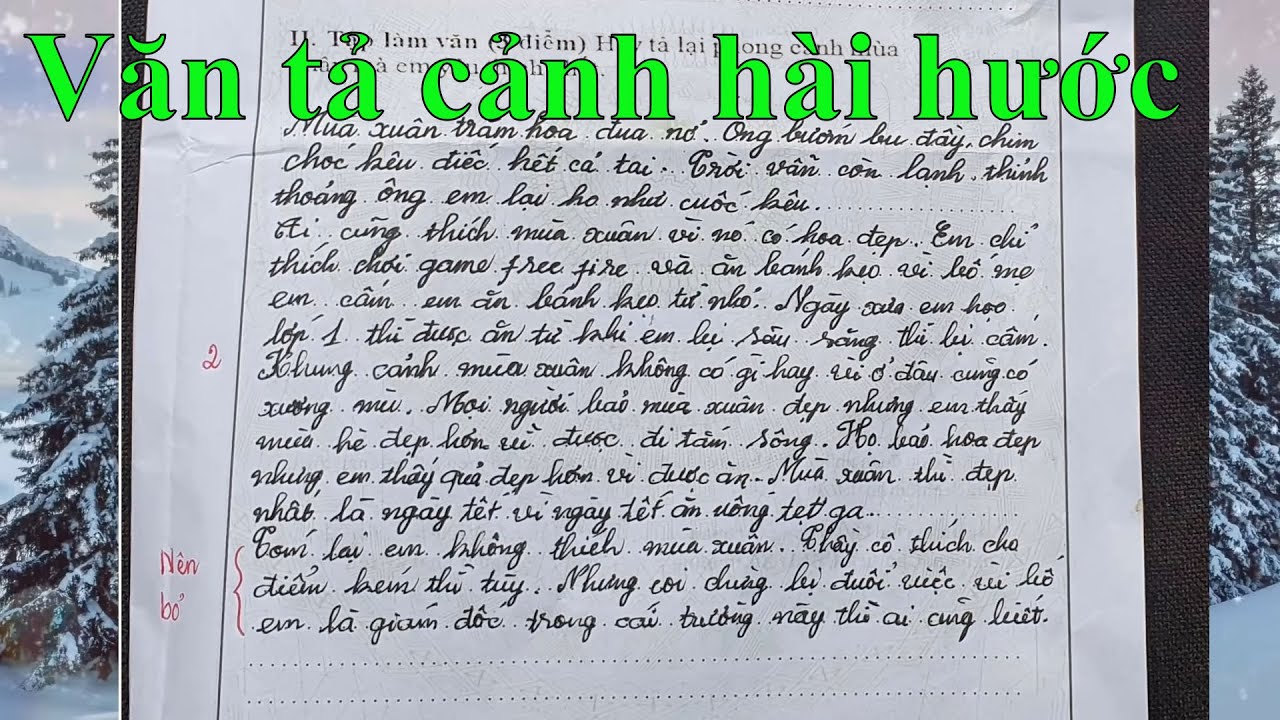 Văn tả cảnh hài hước
II. Tập làm văn (5 điểm) Hãy tả lại phong cảnh mùa
mà em
Mùa xuân trăm hoa đua nở. Ong bướm bu đầy, chim
choc kêu điếc hết cả tai. Trời vẫn còn lạnh, thỉnh
thoảng ông em lại ho như cuốc kêu.
Ai cũng thích mùa xuân vì nó có hoa đẹp. Em chỉ
thích chơi game free fire và ăn bánh kẹo vì bố mẹ
em cấm em ăn bánh kẹo từ nhỏ. Ngày xưa em học
lớp 1 thì được ăn từ khi em bị sâu răng thì bị cấm.
2
Khung cảnh mùa xuân không có gì hay vì ở đâu cũng có
xương mù. Mọi người bảo mùa xuân đẹp nhưng em thấy
mùa hè đẹp hơn vì được đi tắm sông. Họ bảo hoa đẹp
nhưng em thấy quả đẹp hơn vì được ăn. Mùa xuân thì đẹp
nhất là ngày tết vì ngày tết ăn uống tẹt ga.
Tóm lại em không thích mùa xuân. Thầy cô thích cho
Nên
điểm kém thì tùy. Nhưng coi chừng bị đuổi việc vì bố
bỏ
em là giám đốc trong cái trường này thì ai cũng biết.